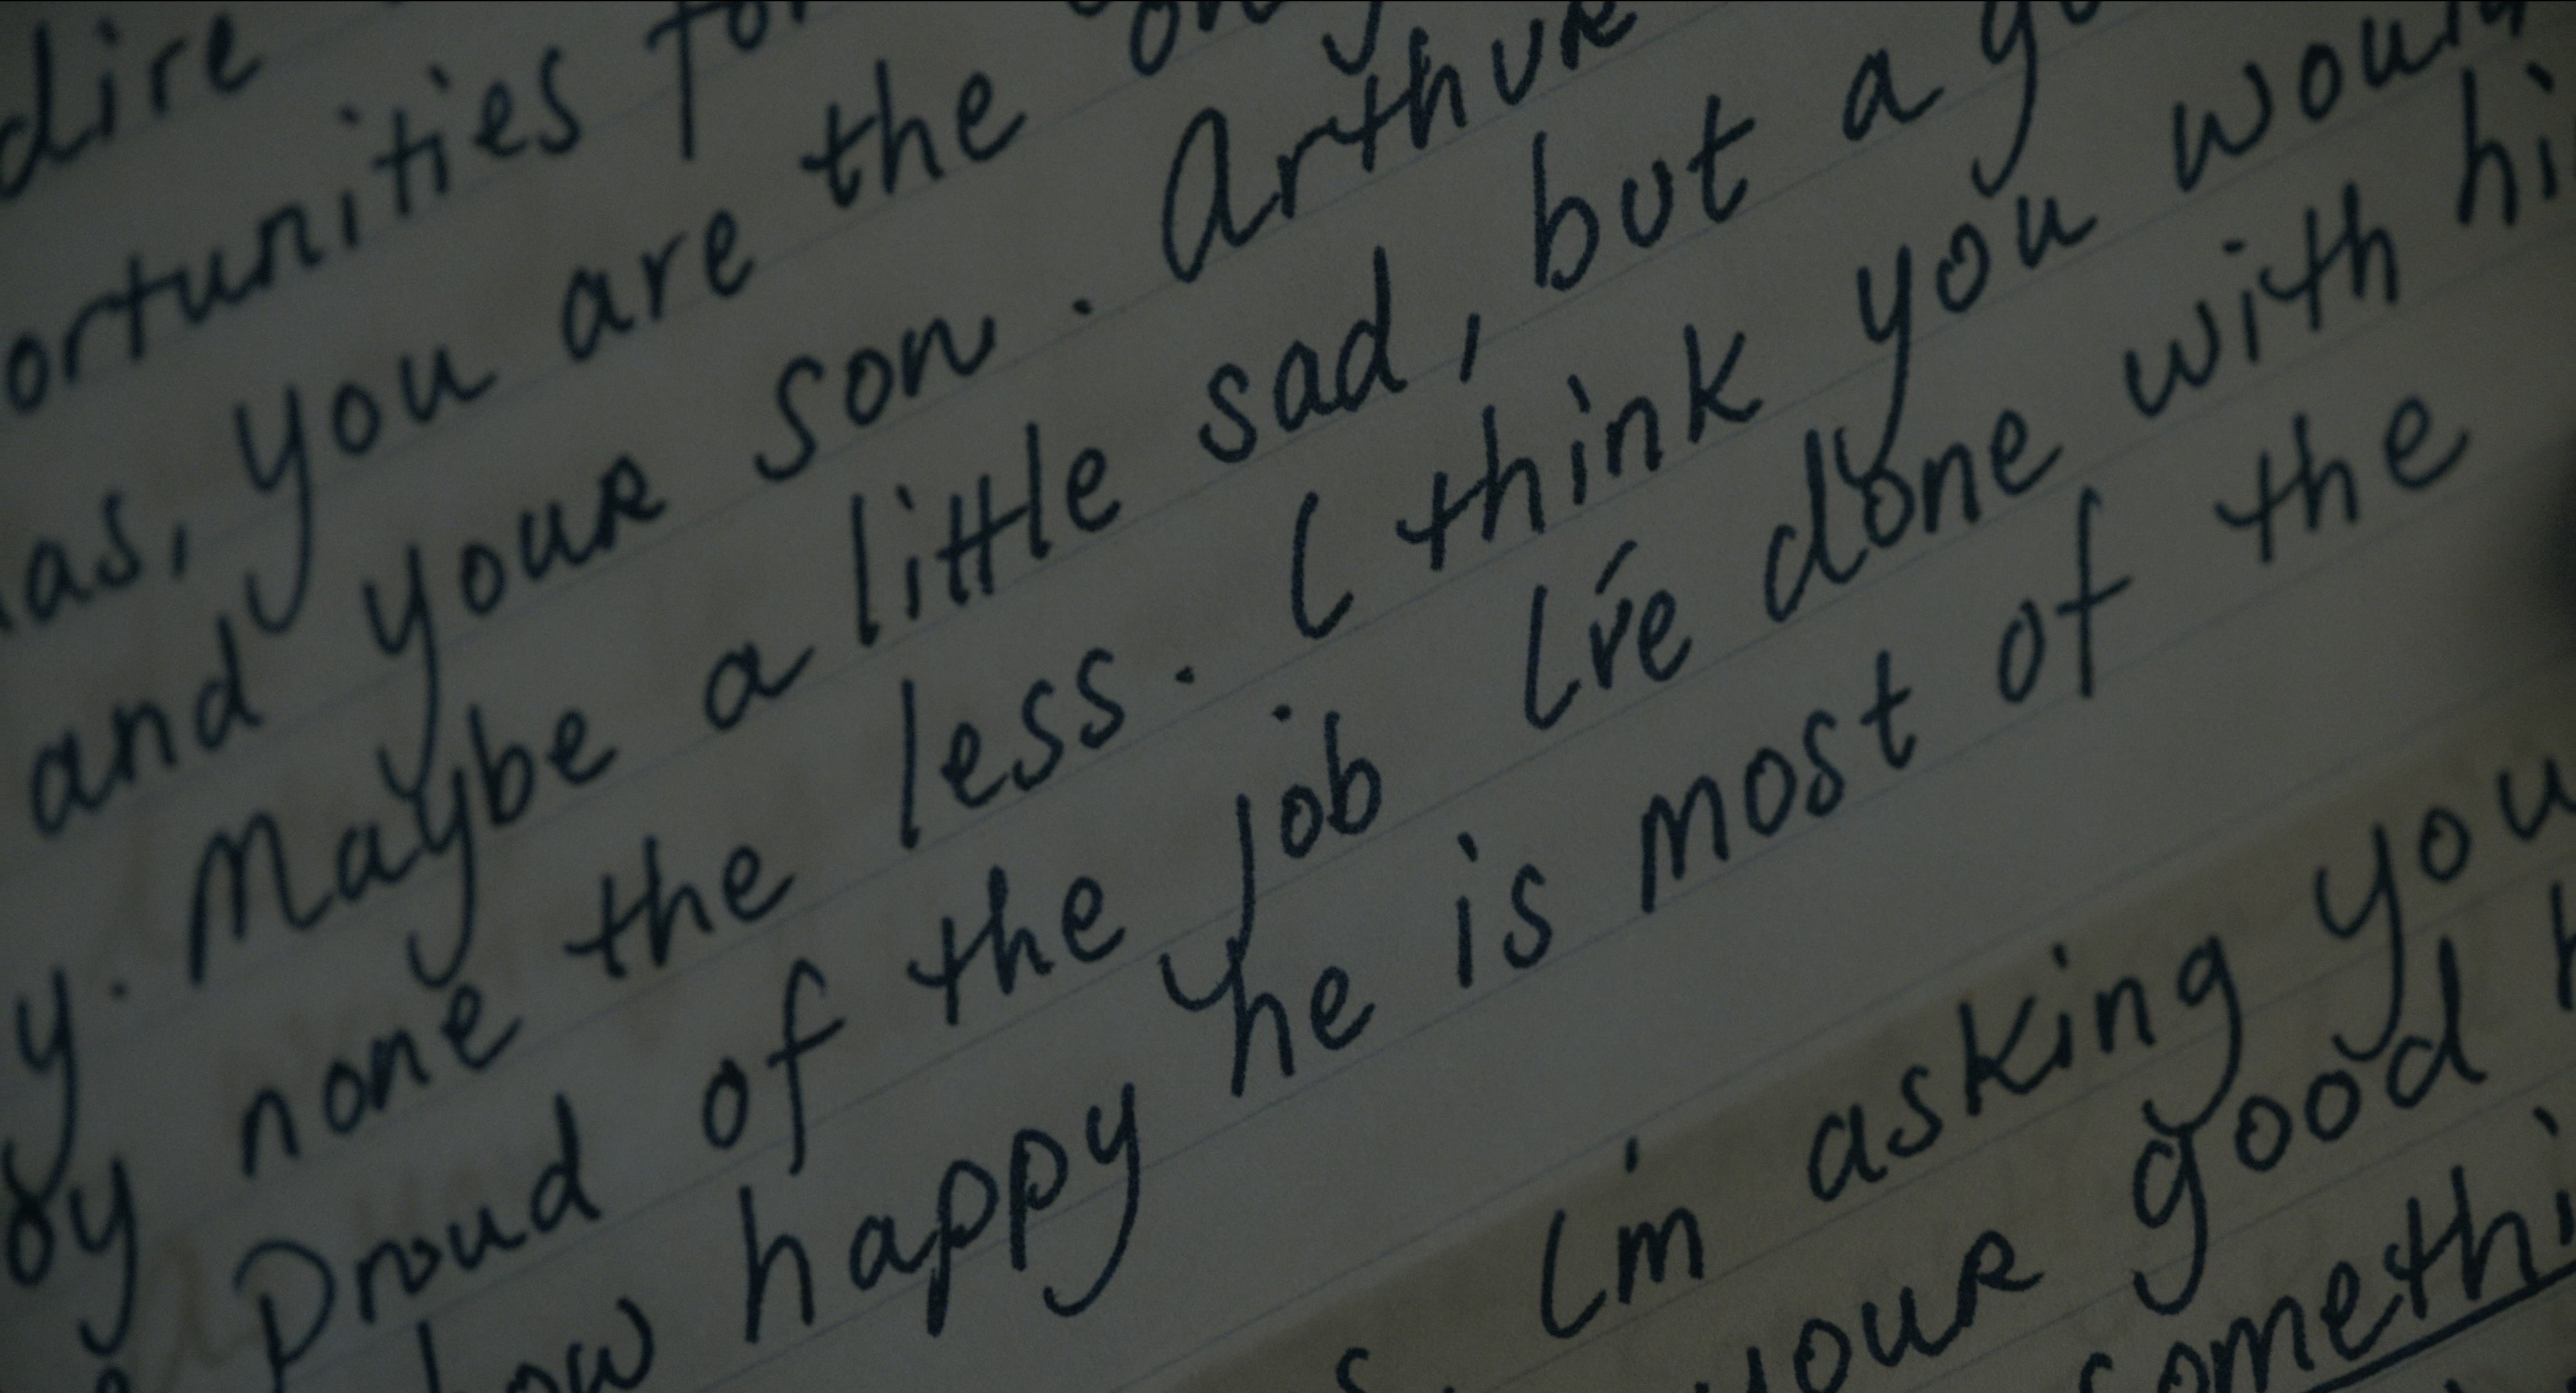 dire
ortunities for
as, you are the on
and your son. Arthur
y. Maybe a little sad, but a g
oy none the less. I think you would
Proud of the job I've done with hi
how happy he is most of the
I'm asking you
your good h
somethi